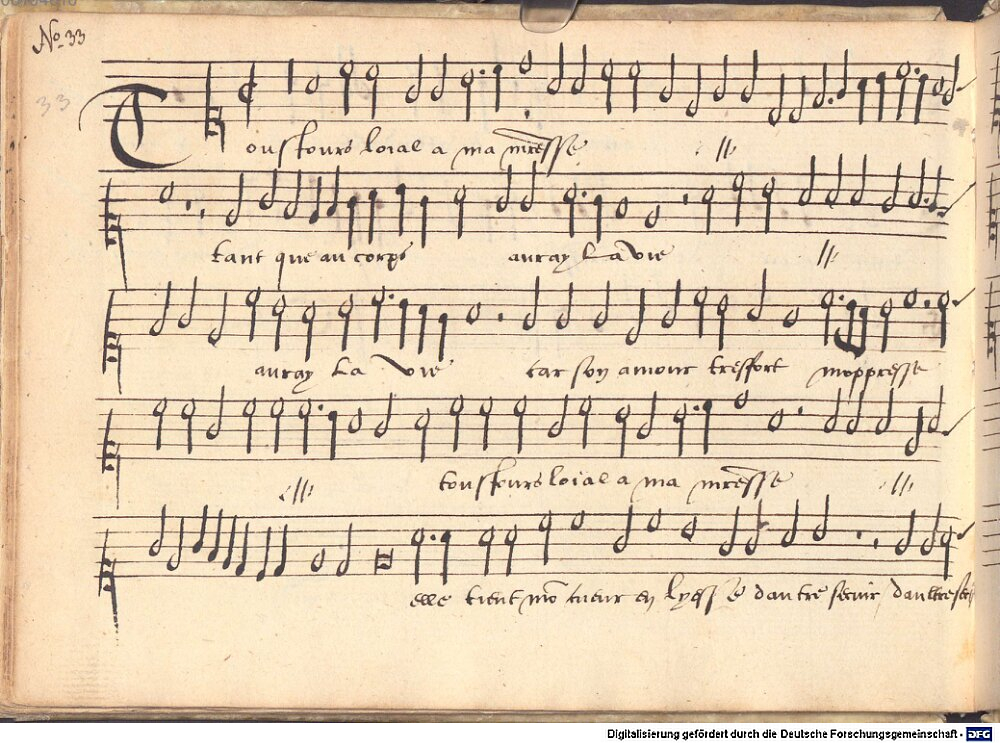 No. 33
33
Tousiours loial a ma mr̃esse //
tant que au corps auray La vie //
auray La vie car son amour tresfort moppresse
// tousiours loial a ma mr̃esse //
elle tient mõ cueur en lyesse dautre seruir
Digitalisierung gefördert durch die Deutsche Forschungsgemeinschaft - DFG